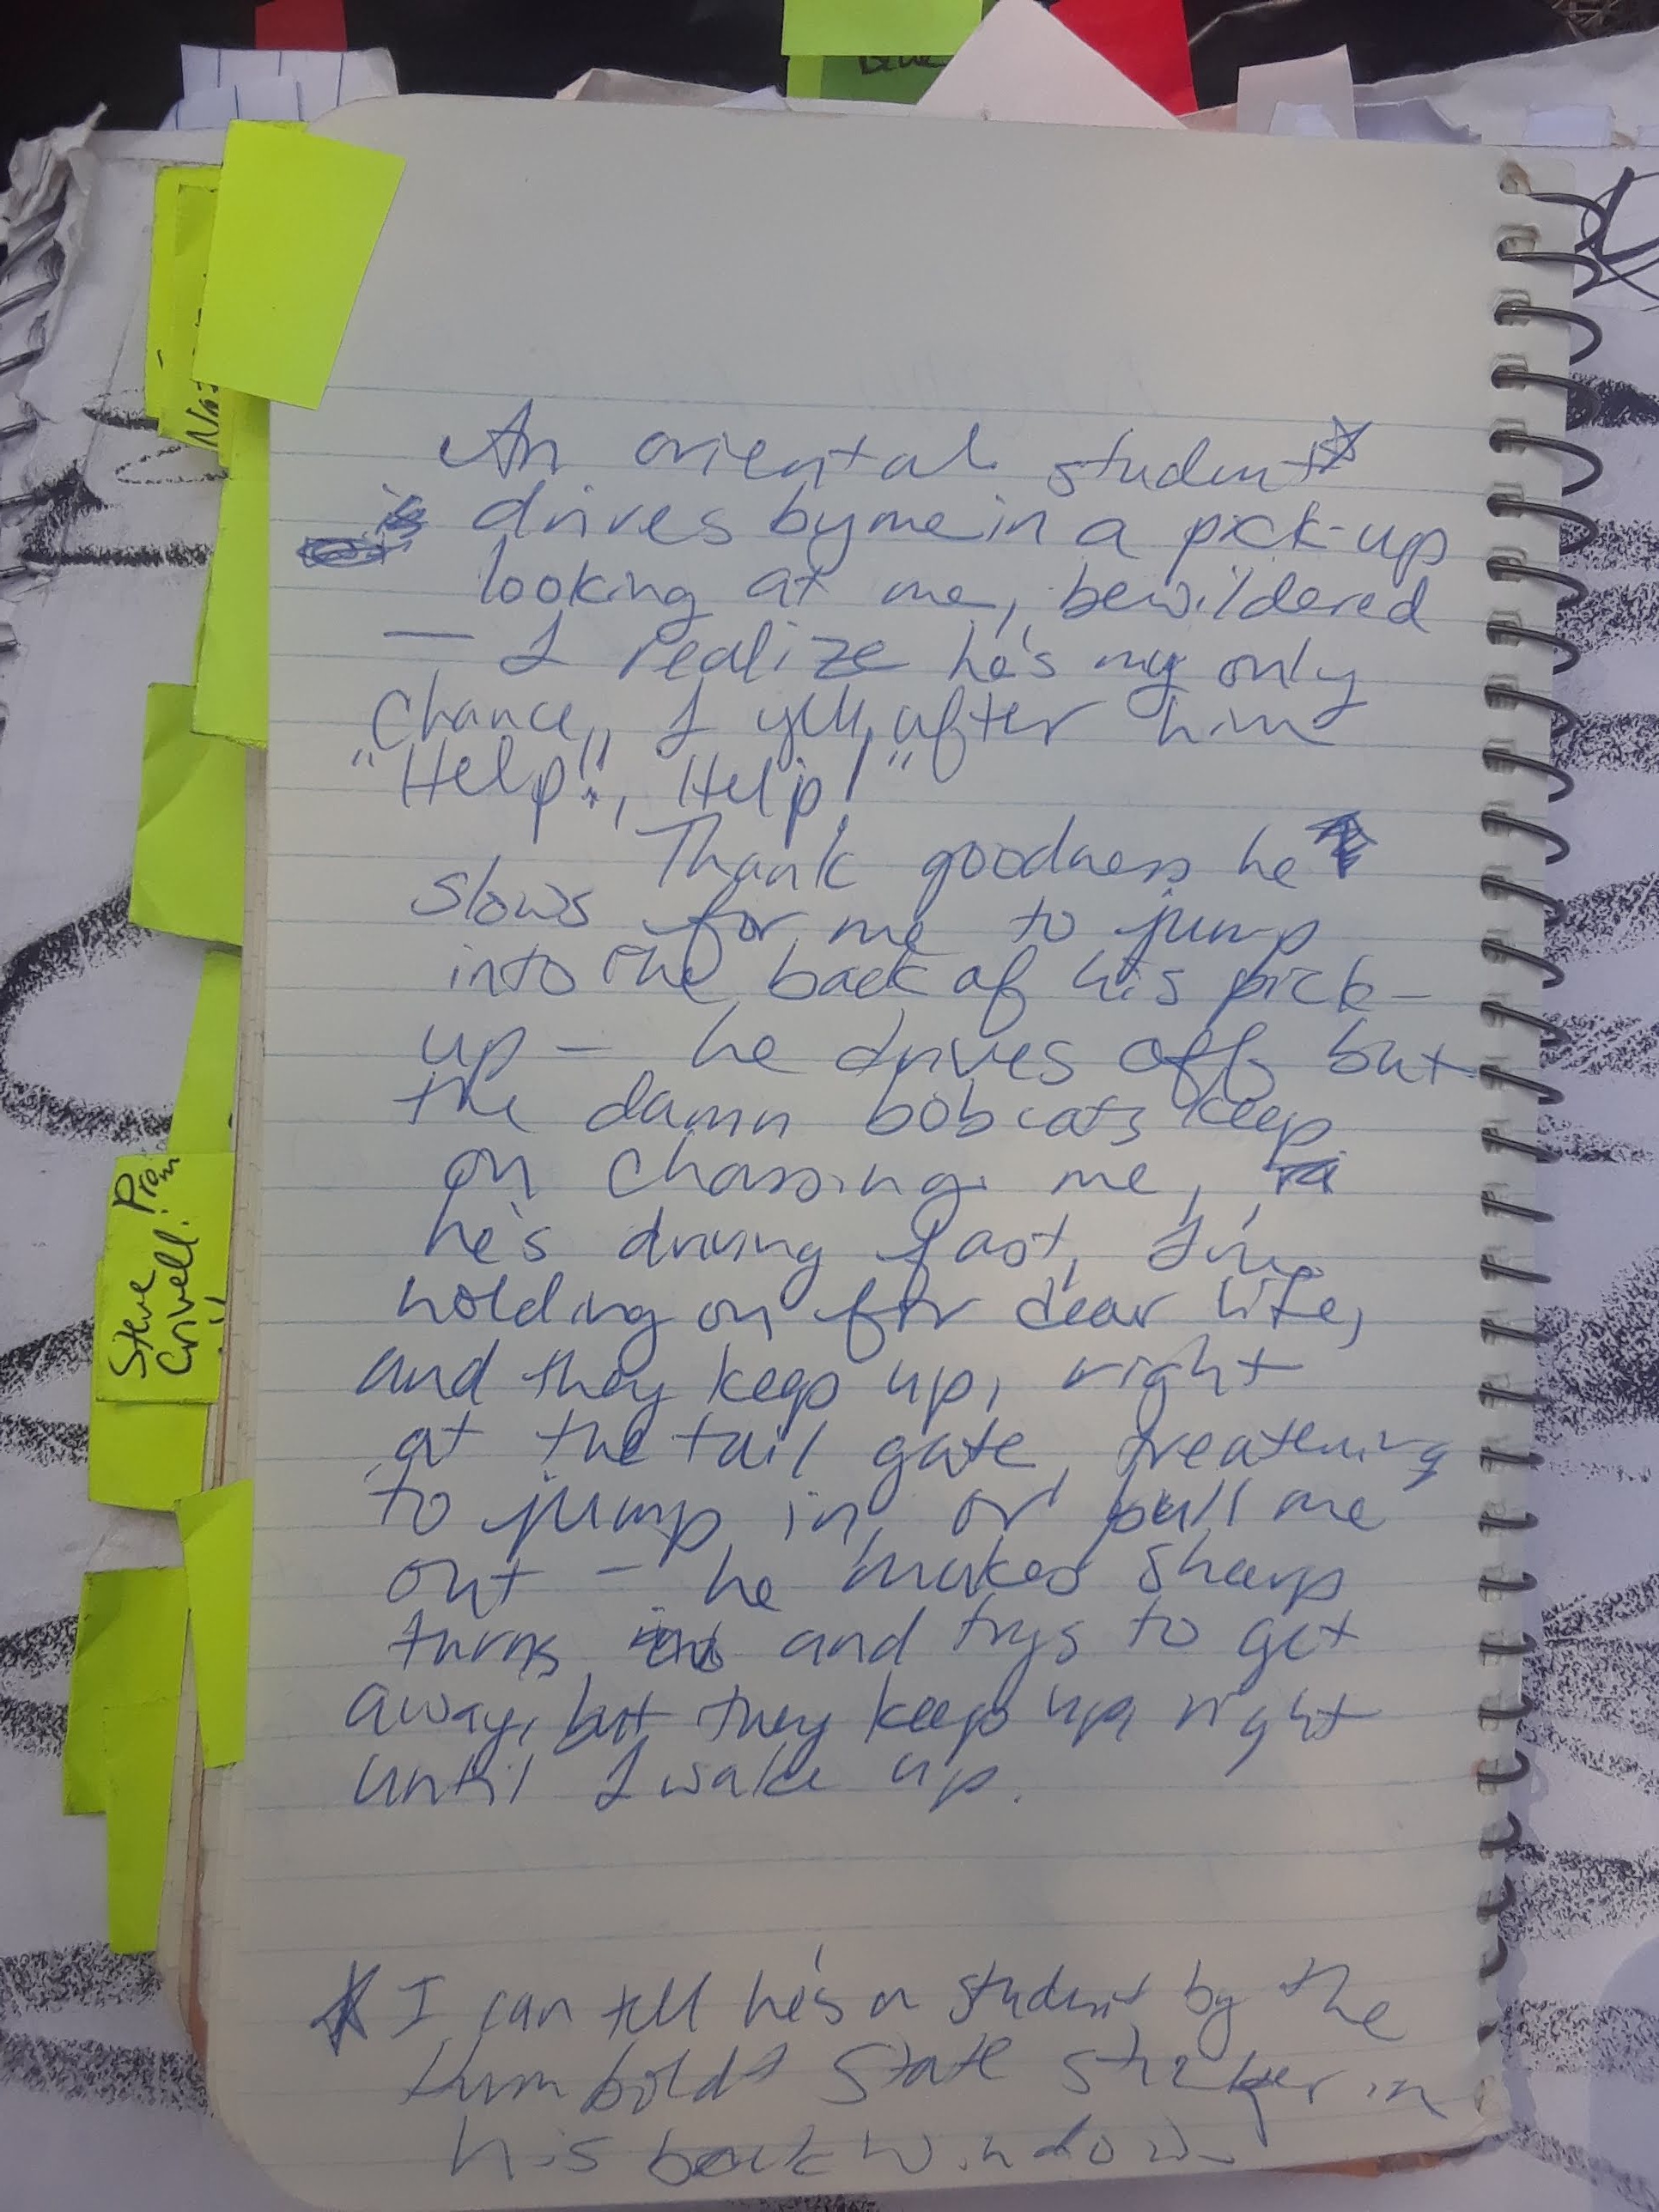 An oriental student*
is drives by me in a pick-up
looking at me, bewildered
— I realize he's my only
chance, I yell after him
"Help!", Help!"
Thank goodness he
slows for me to jump
into the back of his pick-
up — he drives off but
the damn bobcats keep
on chassing me,
he's driving fast, I'm
holding on for dear life,
and they keep up, right
at the tail gate, threatening
to jump in, or pull me
out — he makes sharp
turns and trys to get
away, but they keep up right
until I wake up.
* I can tell he's a student by the
Humboldt State sticker in
his back window.
Steve
Crivelli
Prem